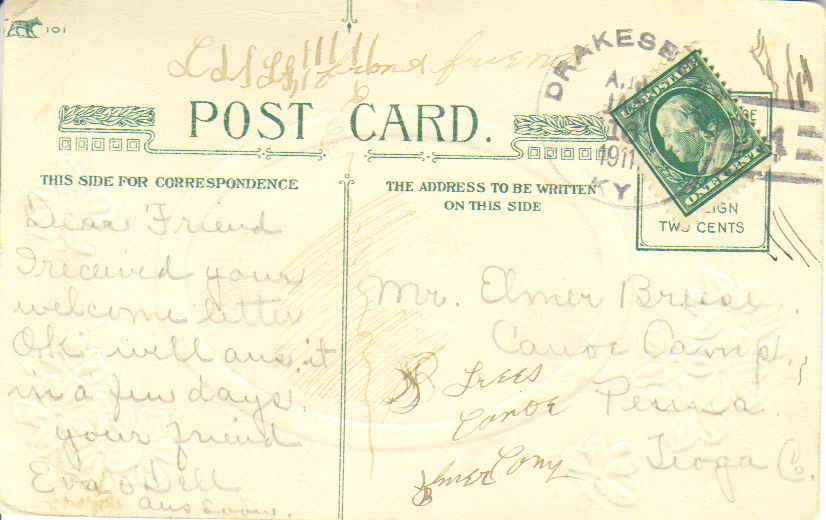 101
friend
DRAKESB
A.M.
1911
KY
U.S. POSTAGE
ONE CENT
POST CARD.
THIS SIDE FOR CORRESPONDENCE
THE ADDRESS TO BE WRITTEN
ON THIS SIDE
IGN
TWO CENTS
Dear Friend
I received your
welcome letter
OK will ans. it
in a few days.
your friend
Eva Odell
ans soon.
Mr. Elmer Breese
Canoe Camp.
Penna.
Tioga Co.
Trees
Canoe